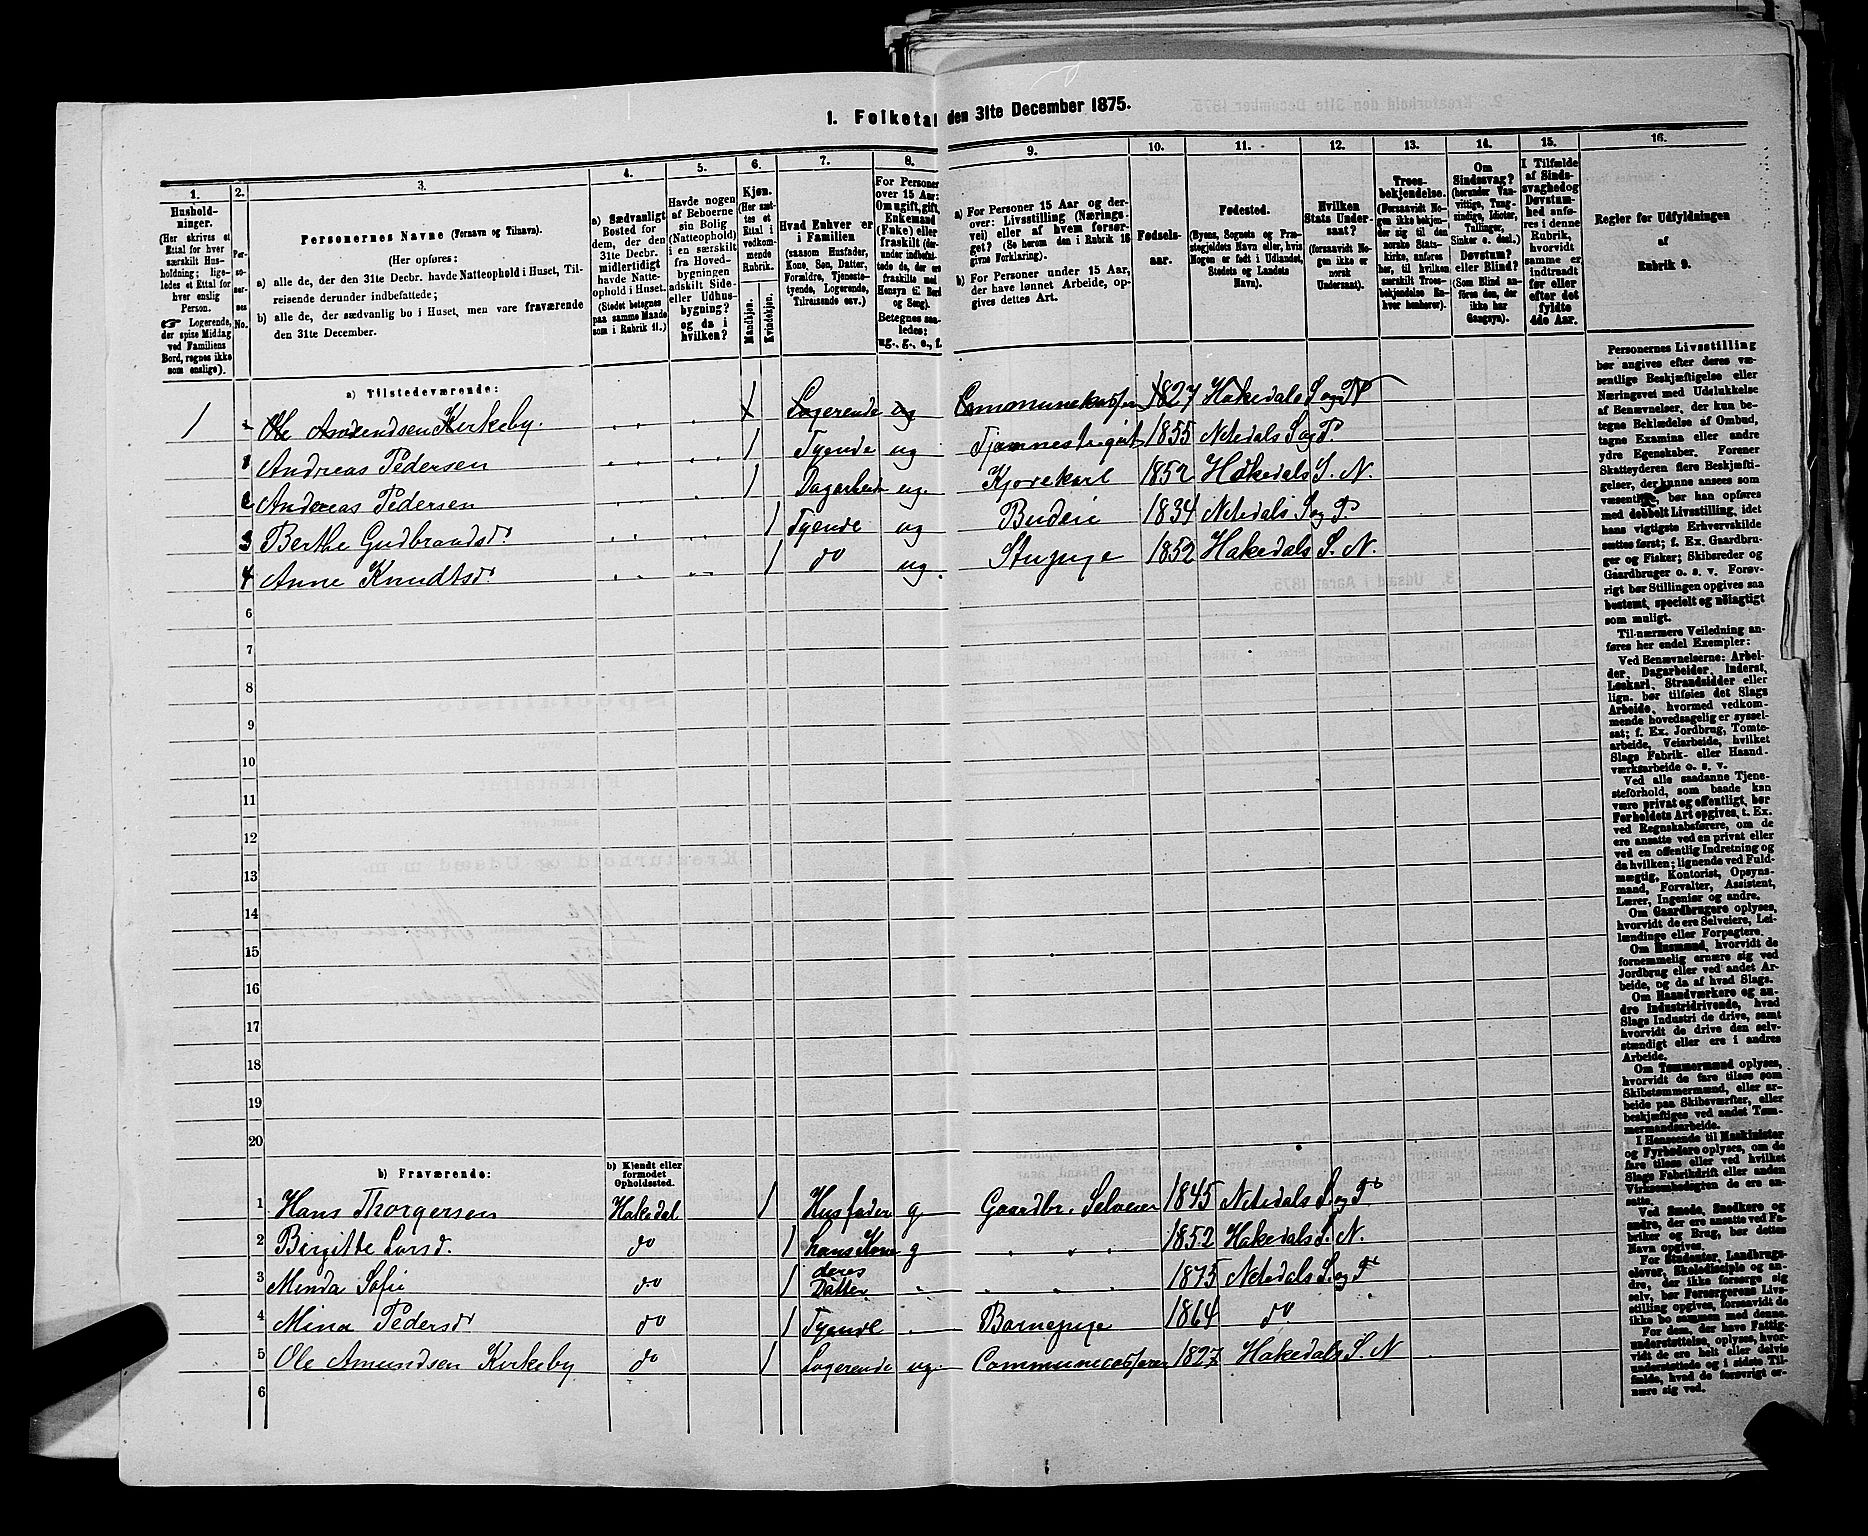 1. Folketal den 31te December 1875.
1. 2. 3. 4. 5. 6. 7. 8. 9. 10. 11. 12. 13. 14. 15. 16.
Hushold-
ninger.
(Her skrives et
Ettal for hver
særskilt Hus-
holdning; lige-
ledes et Ettal for
hver enslig
Person.
☞ Logerende,
der spise Middag
ved Familiens
Bord, regnes ikke
som enslige).
Per-
so-
ner-
nes
No.
Personernes Navne (Fornavn og Tilnavn).
(Her opføres:
a) alle de, der den 31te Decbr. havde Natteophold i Huset, Til-
reisende derunder indbefattede;
b) alle de, der sædvanlig bo i Huset, men vare fraværende
den 31te December.
a) Sædvanligt
Bosted for
dem, der den
31te Decbr.
midlertidigt
havde Natte-
ophold i Huset.
(Stedet betegnes
paa samme Maade
som i Rubrik 11.)
Havde nogen
af Beboerne
sin Bolig
(Natteophold)
i en særskilt
fra Hoved-
bygningen
adskilt Side-
eller Udhus-
bygning?
og da i
hvilken?
Kjøn.
(Her sæt-
tes et
Ettal i
vedkom-
mende
Rubrik.
Mandkjøn.
Kvindekjøn.
Hvad Enhver er
i Familien
(saasom Husfader,
Kone, Søn, Datter,
Forældre, Tjeneste-
tyende, Logerende,
Tilreisende osv.)
For Personer
over 15 Aar:
Om ugift, gift,
Enkemand
(Enke) eller
fraskilt (der-
under indbefat-
tede de, der ere
fraskilte med
Hensyn til Bord
og Seng).
Betegnes saa-
ledes:
ug., g., e., f.
a) For Personer 15 Aar og der-
over: Livsstilling (Nærings-
vei) eller af hvem forsør-
get? (Se herom den i Rubrik 16
givne Forklaring).
b) For Personer under 15 Aar,
der have lønnet Arbeide, op-
gives dettes Art.
Fødsels-
aar.
Fødested.
(Byens, Sognets og Præ-
stegjeldets Navn eller, hvis
Nogen er født i Udlandet,
Stedets og Landets
Navn).
Hvilken
Stats Under-
saat?
(forsaavidt No-
gen ikke er
norsk
Undersaat).
Troes-
bekjendelse.
(Forsaavidt No-
gen ikke bekjen-
der sig til den
norske Stats-
kirke, anføres
her, til hvilken
særskilt Troes-
bekjendelse En-
hver henhører).
Om
Sindssvag?
(herunder Van-
vittige, Tung-
sindige, Idioter,
Tullinger,
Sinker o. desl.)
Døvstum?
eller Blind?
(Som Blind an-
føres den, der
ikke har
Gangsyn).
I Tilfælde
af Sinds-
svaghed og
Døvstum-
hed anfø-
res i denne
Rubrik,
hvorvidt
samme er
indtraadt
før eller
efter det
fyldte
4de Aar.
Regler for Udfyldningen
af
Rubrik 9.
a) Tilstedeværende:
1 Ole Amundsen Kirkeby. 1 Logerende ug Communekasserer 1827 Hakedals S og N
1 Andreas Pedersen 1 Tyende ug 1855 Nitedals S og P.
2 Andreas Pedersen 1 Dagarbeide ug. Kjørekarl 1852 Hakedals S. N.
3 Berthe Gudbrandsd. 1 Tyende ug Budeie 1834 Nitedals S og P
4 Anne Knudtsd 1 do ug. Stupige 1852 Hakedals S. N.
6
7
8
9
10
11
12
13
14
15
16
17
18
19
20
b) Fraværende:
b) Kjendt eller
formodet
Opholdssted.
1 Hans Thorgersen Hakedal 1 Husfader g Gaardbr. Selveier 1845 Nitedals S. og P
2 Birgitte Larsd. do 1 hans Kone g " " " 1852 Hakedals S. N.
3 Minda Sofie do 1 deres Datter " " " 1875 Nitedals S. og P
4 Mina Pedersd do 1 Tyende Barnepige 1864 do
5 Ole Amundsen Kirkeby do 1 Logerende ug. Communecasserer 1827 Hakedals S. N
6
Personernes Livsstilling
bør angives efter deres væ-
sentlige Beskjæftigelse eller
Næringsvei med Udelukkelse
af Benævnelser, der kun be-
tegne Beklædelse af Ombud,
tagne Examina eller andre
ydre Egenskaber. Forener
Skatteyderen flere Beskjæfti-
gelser, der kunne ansees som
væsentlige, bør han opføres
med dobbelt Livsstilling, idet
hans vigtigste Erhvervskilde
sættes først; f. Ex. Gaardbru-
ger og Fisker; Skibsreder og
Gaardbruger o. s. v. Forøv-
rigt bør Stillingen opgives saa
bestemt, specielt og nøiagtigt
som muligt.
Til nærmere Veiledning an-
føres her endel Exempler:
Ved Benævnelserne: Arbei-
der, Dagarbeider, Inderst,
Løskarl, Strandsidder eller
lign. bør tilføies det Slags
Arbeide, hvormed vedkom-
mende hovedsagelig er syssel-
sat; f. Ex. Jordbrug, Tomte-
arbeide, Veiarbeide, hvilket
Slags Fabrik- eller Haand-
værksarbeide o. s. v.
Ved alle saadanne Tjene-
steforhold, som baade kan
være privat og offentligt, bør
Forholdets Art opgives, t. Ex.
ved Regnskabsførere, om de
ere ansatte ved en privat eller
ved en offentlig Indretning og
da hvilken; lignende ved Fuld-
mægtig, Kontorist, Opsyns-
mand, Forvalter, Assistent,
Lærer, Ingeniør og andre.
Om Gaardbrugere oplyses,
hvorvidt de ere Selveiere, Lei-
lændinge eller Forpagtere.
Om Husmænd, hvorvidt de
fornemmelig ernære sig ved
Jordbrug eller ved andet Ar-
beide, og da af hvad Slags.
Om Haandværkere og an-
dre Industridrivende, hvad
Slags Industri de drive, samt
hvorvidt de drive den selv-
stændigt eller ere i andres
Arbeide.
Om Tømmermænd oplyses,
hvorvidt de fare tilsøs som
Skibstømmermænd, eller ar-
beide paa Skibsværfter, eller
beskjæftiges ved andet Tøm-
mermandsarbeide.
I Henseende til Maskinister
og Fyrbødere oplyses, om de
fare tilsøs eller ved hvilket
Slags Fabrikdrift eller anden
Virksomhed gren de ere an-
satte.
Ved Smede, Snedkere og
andre, der ere ansatte ved Fa-
briker og Brug, bør dettes
Navn opgives.
For Studenter, Landbrugs-
elever, Skoledisciple og an-
dre, der ikke forsørge sig
selv, bør Forsørgerens Livs-
stilling opgives, forsaavidt de
ikke bo sammen med denne.
For dem, der have Fattig-
understøttelse, oplyses, hvor-
vidt de ere helt eller delvis
understøttede og i sidste Til-
fælde, hvad de forøvrigt er-
nære sig ved.